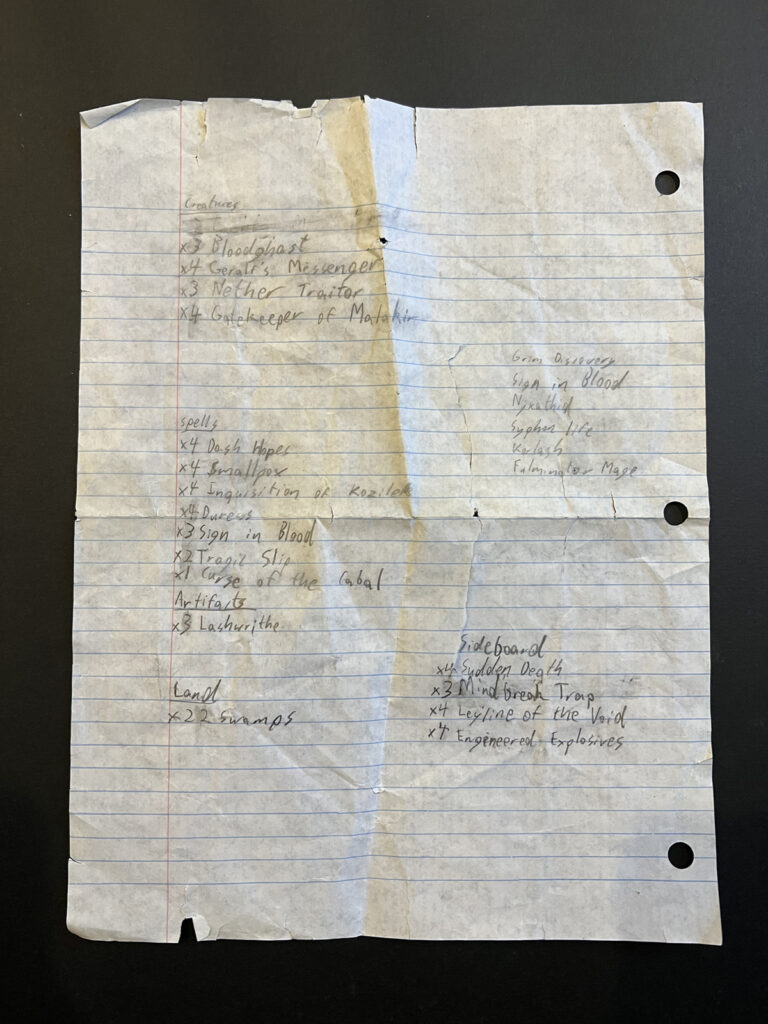 Creatures
x3 Bloodghast
x4 Geralf's Messenger
x3 Nether Traitor
x4 Gatekeeper of Malakir
Spells
x4 Dash Hopes
x4 Smallpox
x4 Inquisition of Kozilek
x4 Duress
x3 Sign in Blood
x2 Tragic Slip
x1 Curse of the Cabal
Artifacts
x3 Lashwrithe
Land
x22 Swamps
Grim Discovery
Sign in Blood
Nyxathid
Syphon life
Korlash
Fulminator Mage
Sideboard
x4 Sudden Death
x3 Mindbreak Trap
x4 Leyline of the Void
x4 Engineered Explosives